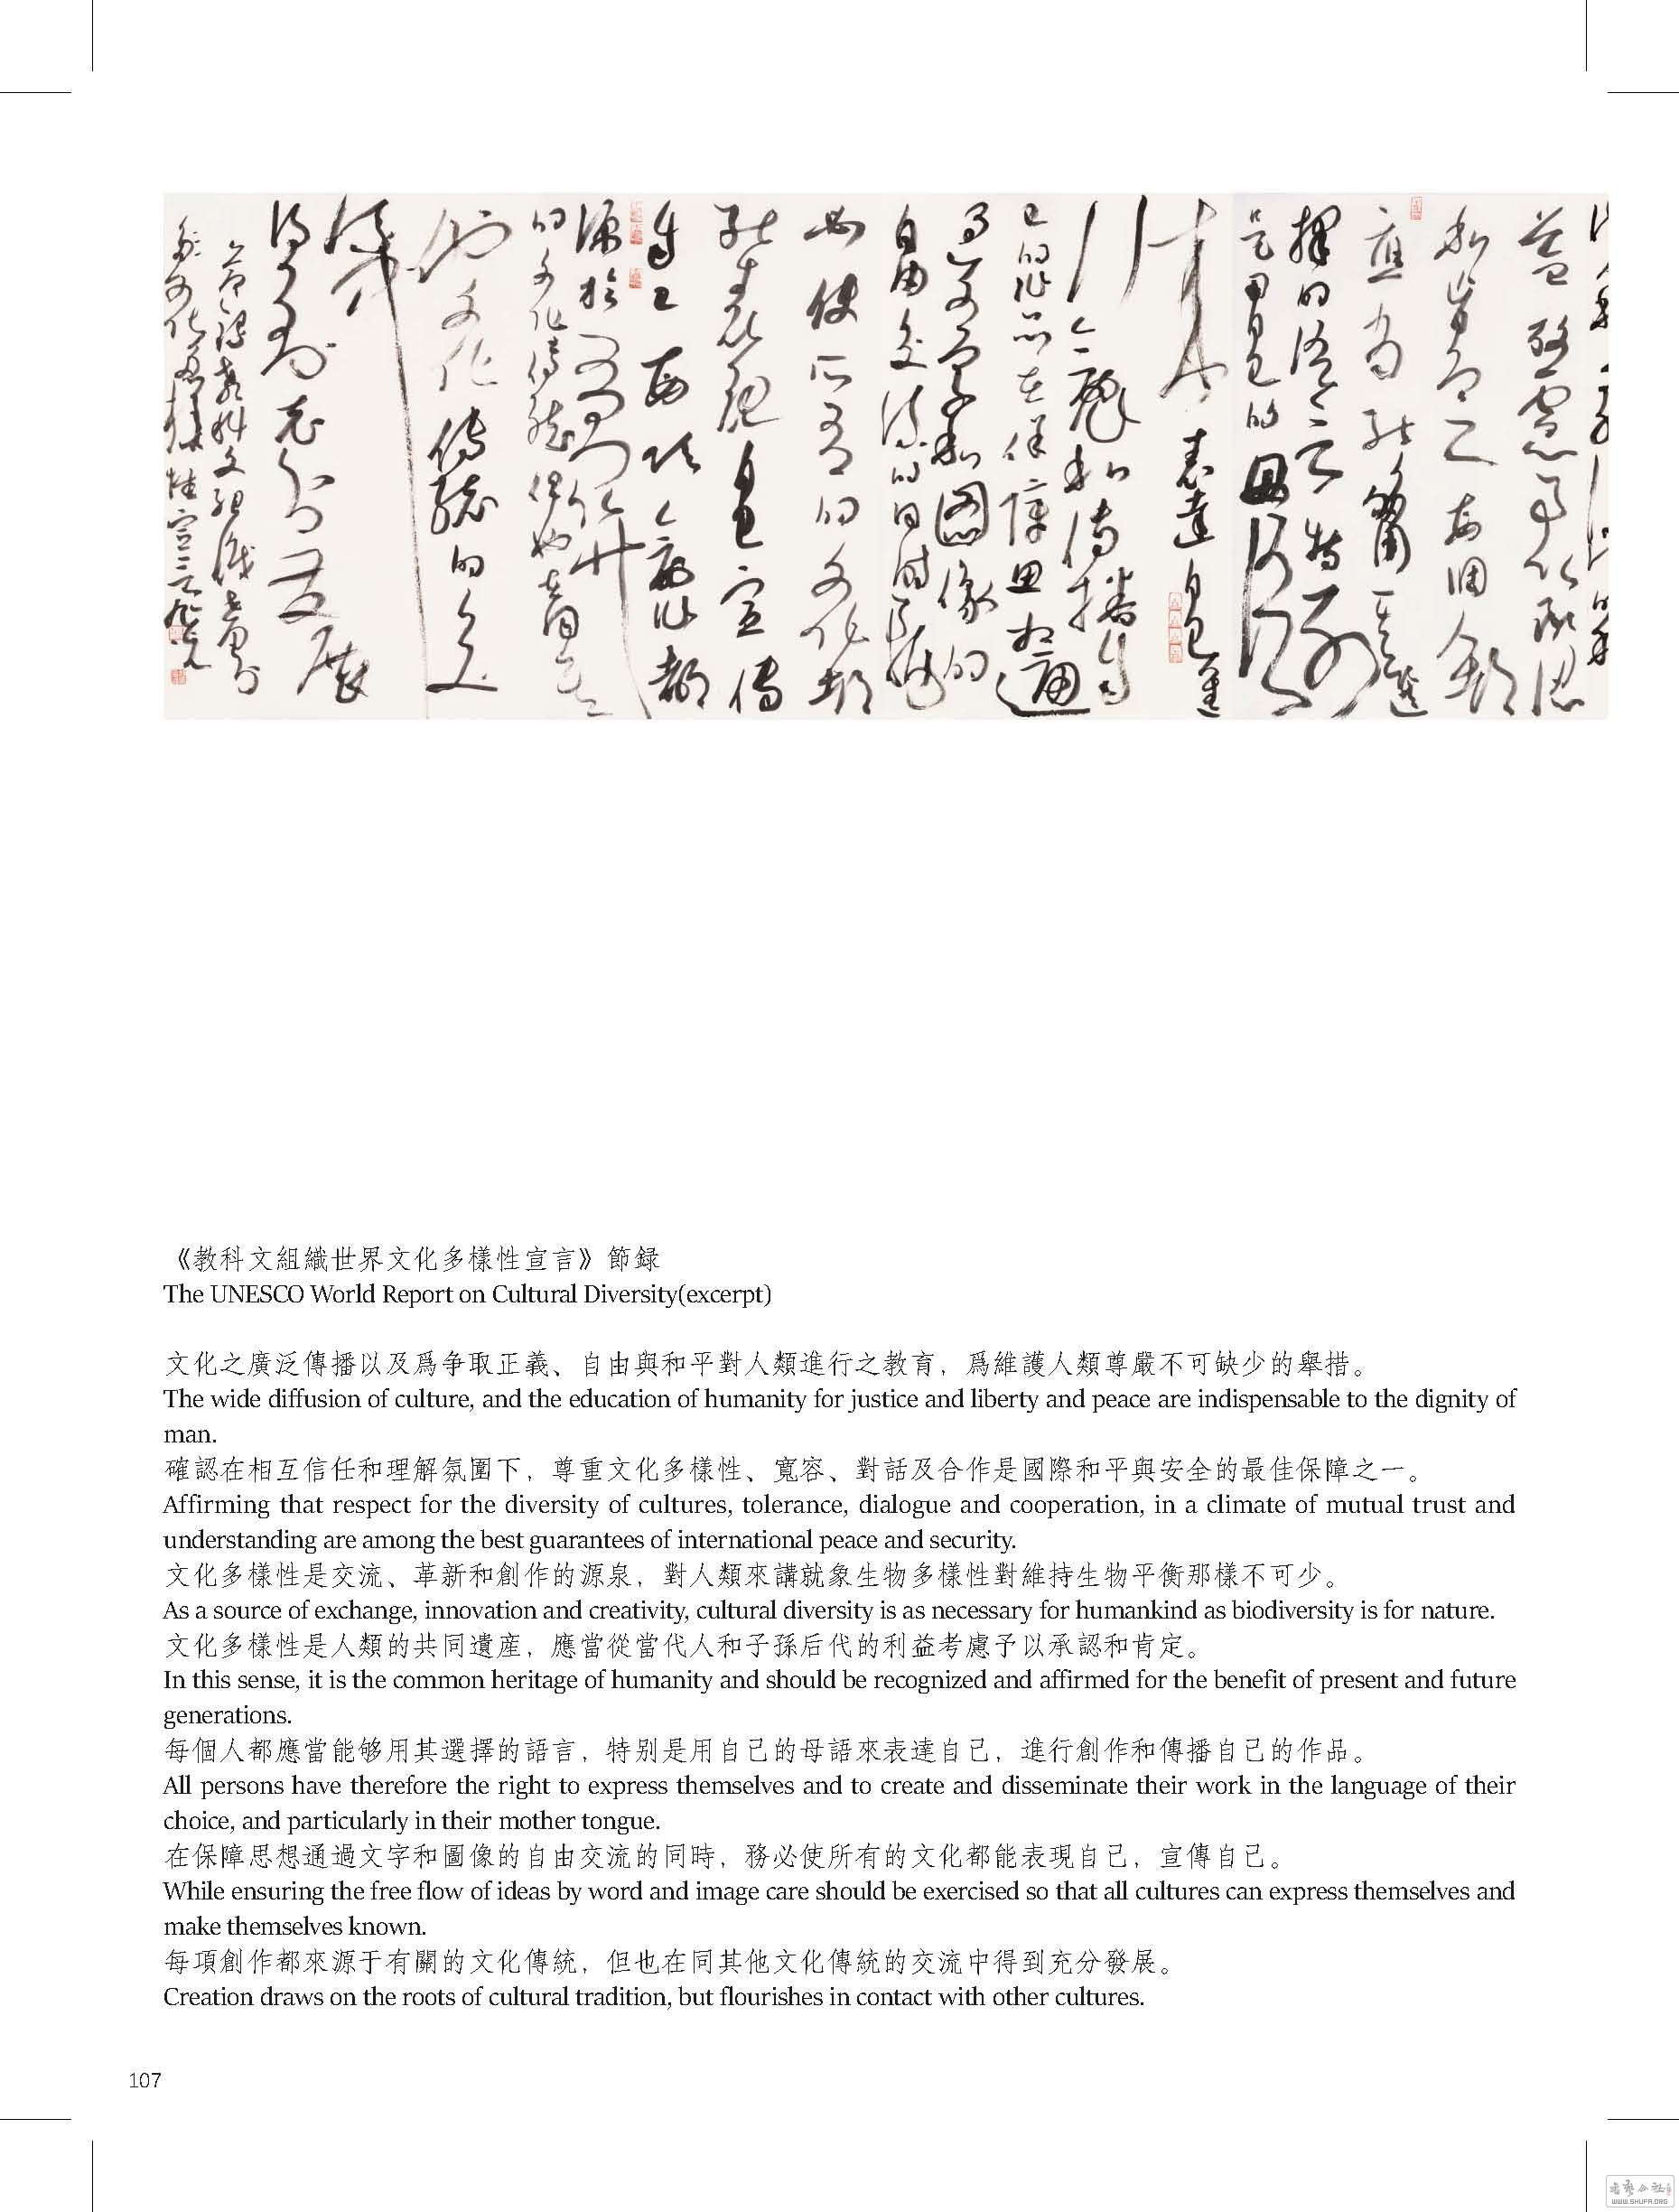 益考慮予以承認
和肯定每個人都
應當能够用其選
擇的語言特别
是用自己的母語
來表達自己進
行創作和傳播自
己的作品在保障思想通
過文字和圖像的
自由交流的同時務
必使所有的文化都
能表現自己宣傳
自己每項創作都
源於有關
的文化傳統但也在同其
他文化傳統的交
流中
得到充分發展
節録教科文組織世界
文化多樣性宣言
《教科文組織世界文化多樣性宣言》節録
The UNESCO World Report on Cultural Diversity(excerpt)
文化之廣泛傳播以及爲争取正義、自由與和平對人類進行之教育，爲維護人類尊嚴不可缺少的舉措。
The wide diffusion of culture, and the education of humanity for justice and liberty and peace are indispensable to the dignity of
man.
確認在相互信任和理解氛圍下，尊重文化多樣性、寬容、對話及合作是國際和平與安全的最佳保障之一。
Affirming that respect for the diversity of cultures, tolerance, dialogue and cooperation, in a climate of mutual trust and
understanding are among the best guarantees of international peace and security.
文化多樣性是交流、革新和創作的源泉，對人類來講就象生物多樣性對維持生物平衡那樣不可少。
As a source of exchange, innovation and creativity, cultural diversity is as necessary for humankind as biodiversity is for nature.
文化多樣性是人類的共同遺産，應當從當代人和子孫后代的利益考慮予以承認和肯定。
In this sense, it is the common heritage of humanity and should be recognized and affirmed for the benefit of present and future
generations.
每個人都應當能够用其選擇的語言，特别是用自己的母語來表達自己，進行創作和傳播自己的作品。
All persons have therefore the right to express themselves and to create and disseminate their work in the language of their
choice, and particularly in their mother tongue.
在保障思想通過文字和圖像的自由交流的同時，務必使所有的文化都能表現自己，宣傳自己。
While ensuring the free flow of ideas by word and image care should be exercised so that all cultures can express themselves and
make themselves known.
每項創作都來源于有關的文化傳統，但也在同其他文化傳統的交流中得到充分發展。
Creation draws on the roots of cultural tradition, but flourishes in contact with other cultures.
107
WWW.SHUFA.ORG